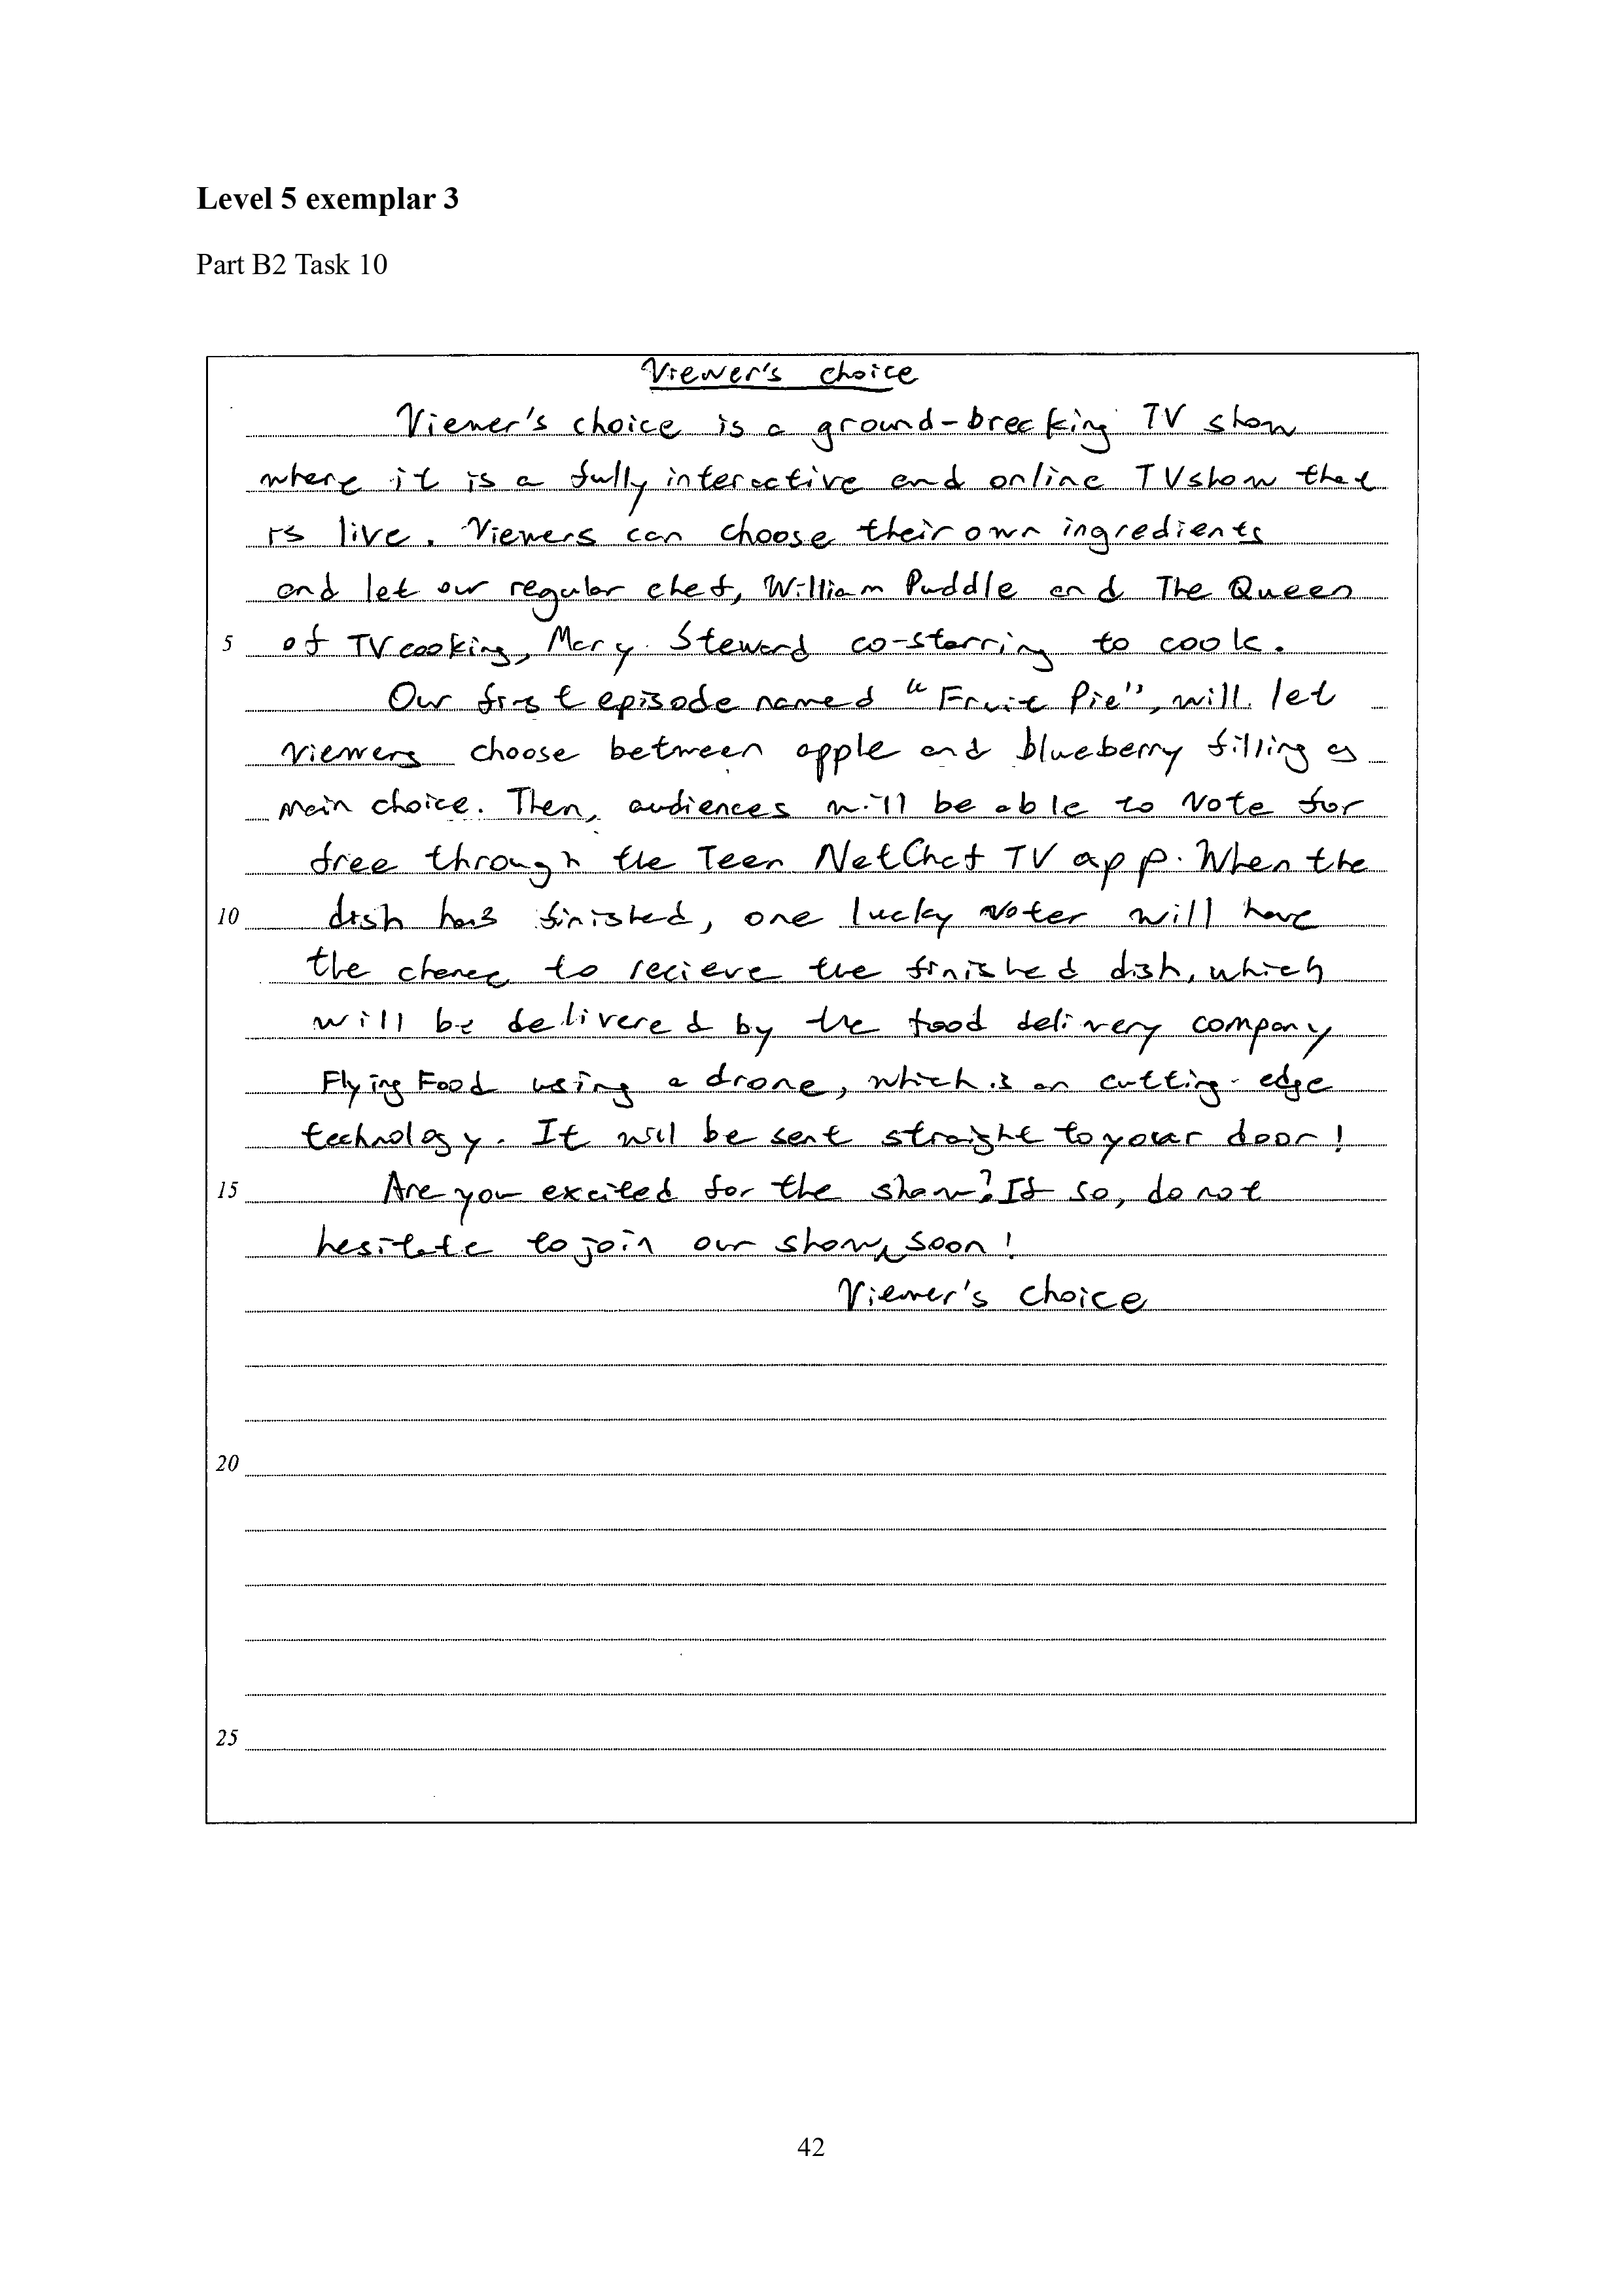 Level 5 exemplar 3
Part B2 Task 10
Viewer's choice
Viewer's choice is a ground-breaking TV show
where it is a fully interactive and online TV show that
is live. Viewers can choose their own ingredients
and let our regular chef, William Puddle and The Queen
5 of TV cooking, Mary Steward co-starring to cook.
Our first episode named "Fruit Pie", will let
viewers choose between apple and blueberry filling as
main choice. Then, audiences will be able to vote for
free through the Teen NetChat TV app. When the
10 dish has finished, one lucky voter will have
the chance to recieve the finished dish, which
will be delivered by the food delivery company
Flying Food using a drone, which is an cutting-edge
technology. It will be sent straight to your door!
15 Are you excited for the show? If so, do not
hesitate to join our show, soon!
Viewer's choice
20
25
42